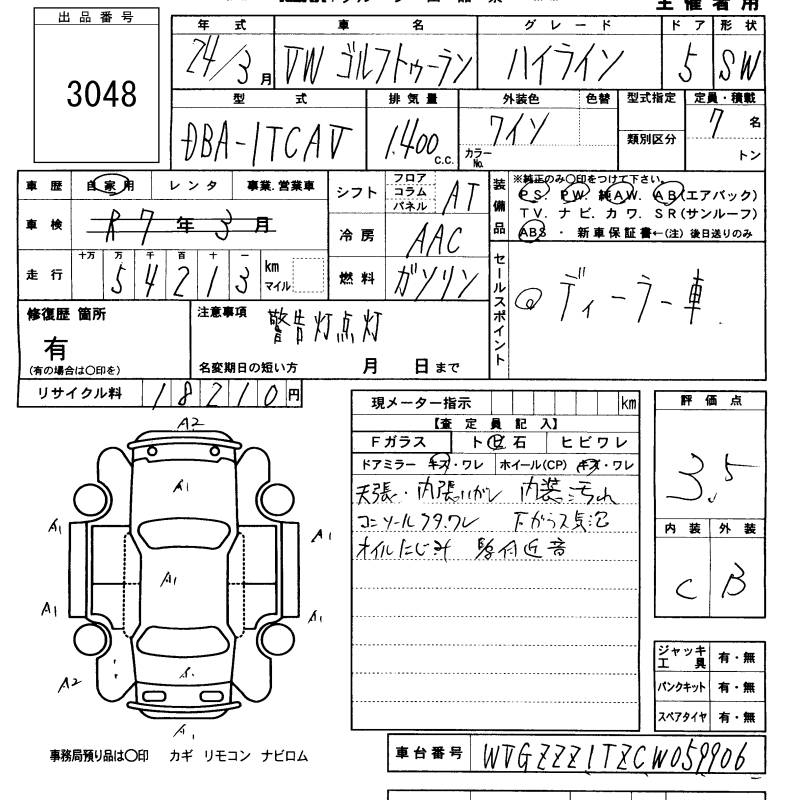 主催者用
出品番号
3048
年式 車名 グレード ドア 形状
24/3月 VW ゴルフトゥーラン ハイライン 5 SW
型式 排気量 外装色 色替 型式指定 定員・積載
DBA-1TCAV 1.400 c.c. ワイン カラーNo. 類別区分 7名
トン
車歴 自家用 レンタ 事業.営業車
車検 R7年3月
走行 十万 万 千 百 十 一
54213 km マイル
シフト フロア コラム パネル AT
冷房 AAC
燃料 ガソリン
装備品 ※純正のみ○印をつけて下さい。
PS. PW. 純AW. AB(エアバック)
TV. ナビ. カワ. SR(サンルーフ)
ABS ・ 新車保証書←(注) 後日送りのみ
セールスポイント
ディーラー車
修復歴 箇所
有
(有の場合は○印を)
注意事項
警告灯点灯
名変期日の短い方 月 日まで
リサイクル料 18210円
現メーター指示 km
【査定員記入】
Fガラス ト ビ 石 ヒビワレ
ドアミラー キズ・ワレ ホイール(CP) キズ・ワレ
天張・内張ハガレ 内装汚れ
コンソールフタワレ
オイルにじみ
評価点
3.5
内装 外装
C B
A2
A1
A1
A1
A1
A1
A1
A1
A2
A1
ジャッキ工具 有・無
パンクキット 有・無
スペアタイヤ 有・無
事務局預り品は○印 カギ リモコン ナビロム
車台番号 WVGZZZ1TZCW059906